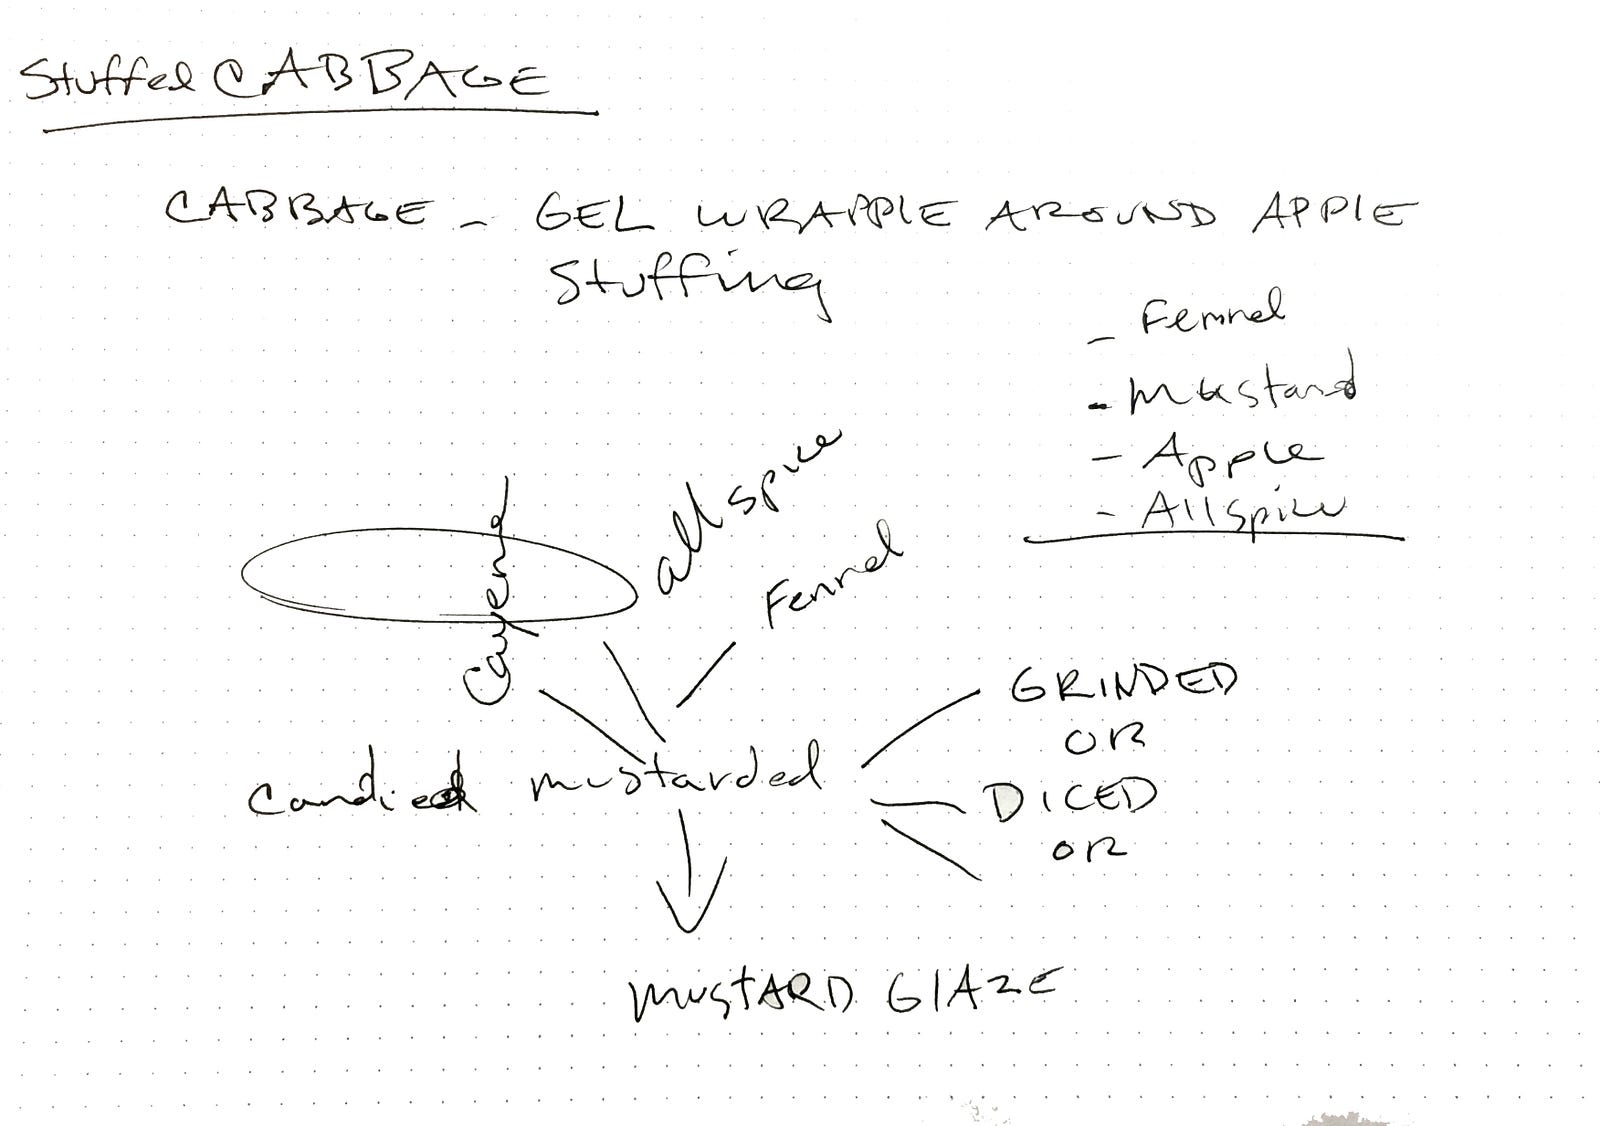 Stuffed CABBAGE
CABBAGE - GEL WRAPPLE AROUND APPLE
Stuffing
- Fennel
- Mustard
- Apple
- Allspice
Cayenne
allspice
Fennel
Candied mustarded
GRINDED
OR
DICED
OR
MUSTARD GLAZE